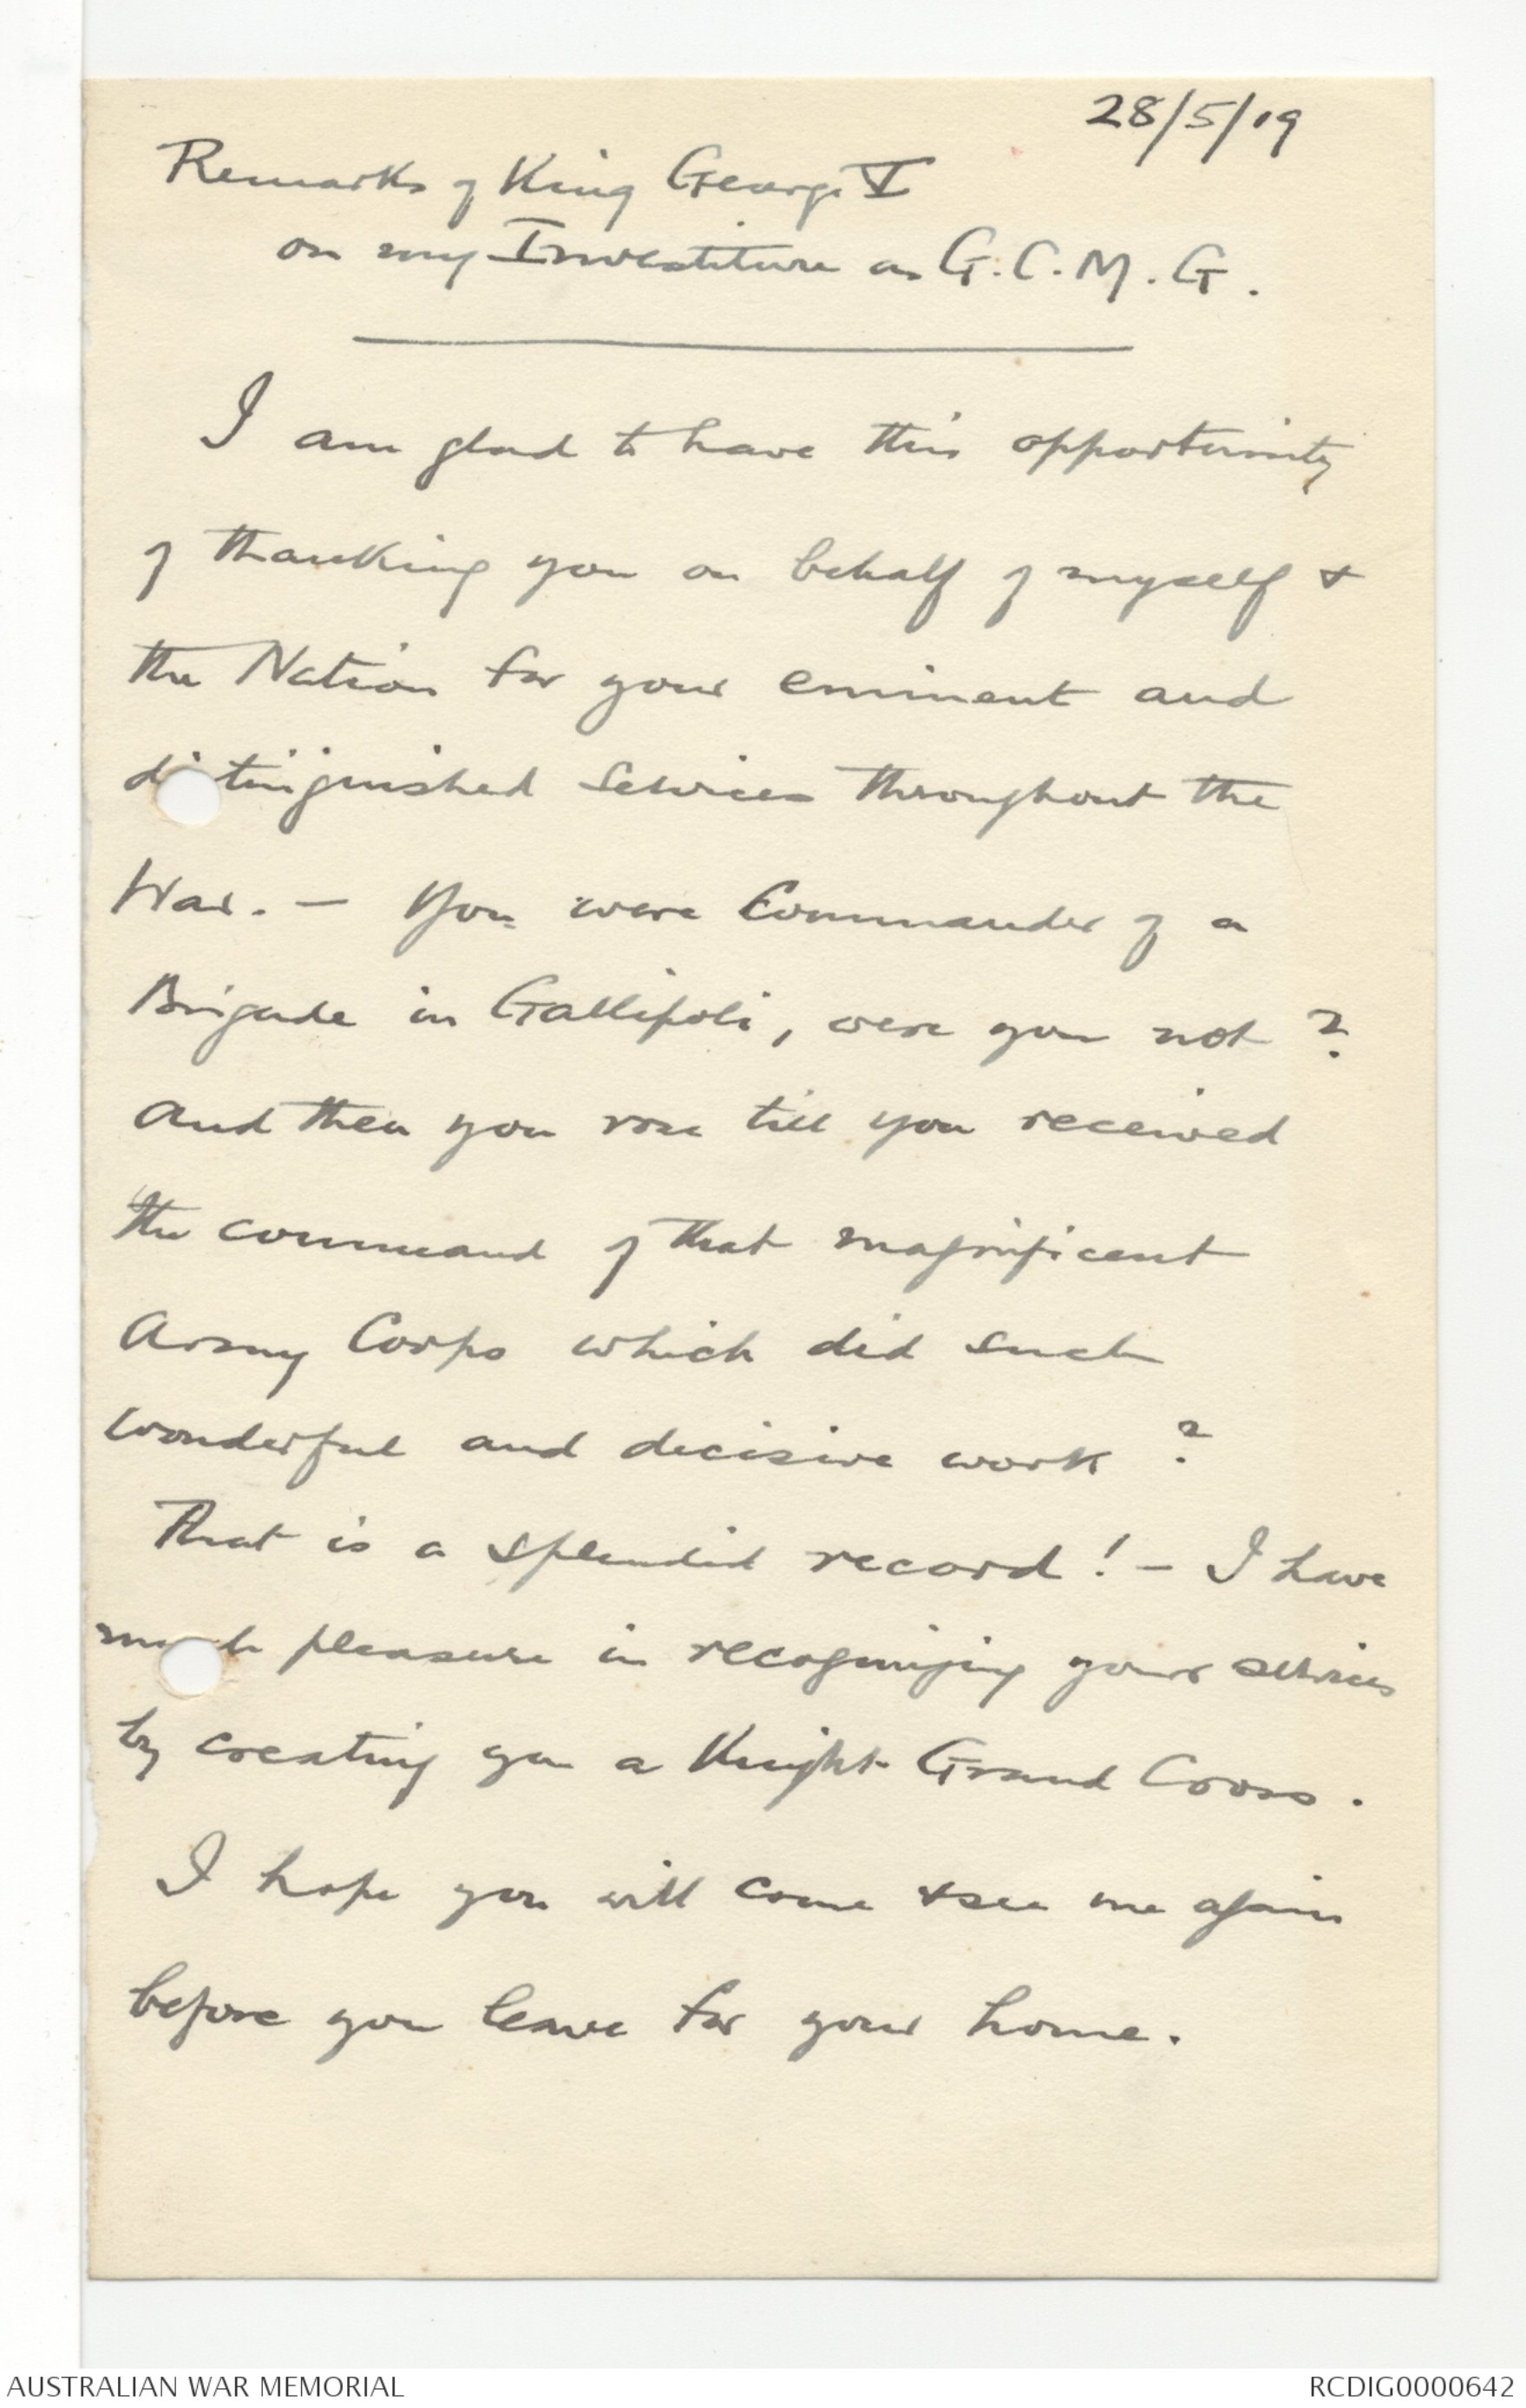 28/5/19
Remarks of King George V
on my Investiture as G.C.M.G.
I am glad to have this opportunity
of thanking you on behalf of myself &
the Nation for your eminent and
distinguished services throughout the
War. — You were Commander of a
Brigade in Gallipoli, were you not ?
And then you rose till you received
the command of that magnificent
Army Corps which did such
wonderful and decisive work ?
That is a splendid record ! — I have
much pleasure in recognizing your services
by creating you a Knight Grand Cross.
I hope you will come & see me again
before you leave for your home.
AUSTRALIAN WAR MEMORIAL
RCDIG0000642